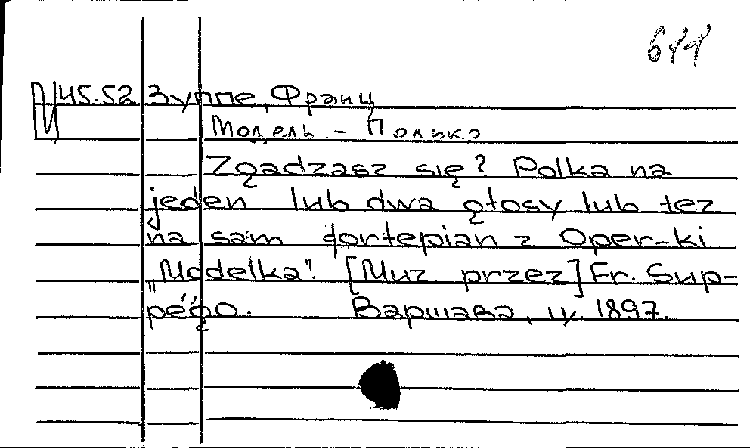 611
И45.52 Зуппе, Франц
Модель - Полика
Zgadzasz się? Polka na
jeden lub dwa głosy lub tez
na sam fortepian z Oper-ki
„Modelka". [Muz przez] Fr. Sup-
pégo. Варшава, ц. 1897.